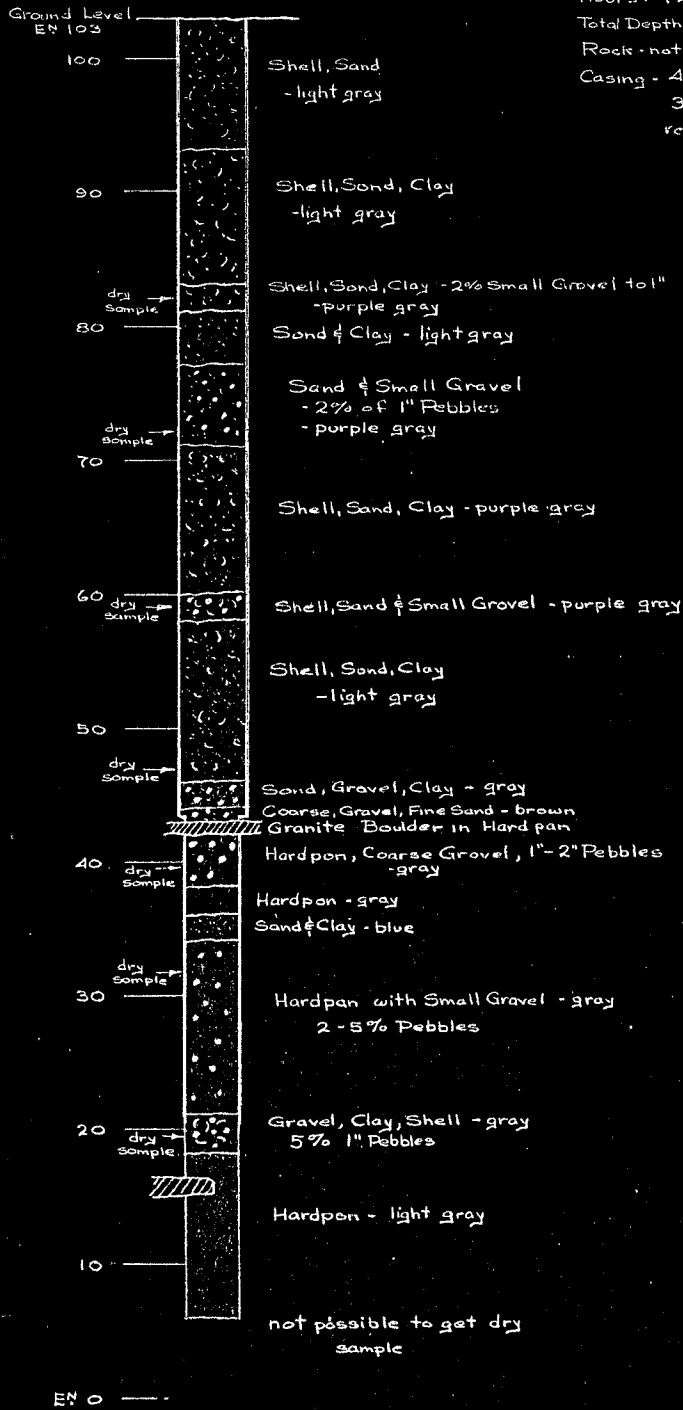 Ground Level
EN 103
Total Depth
Rock - not
Casing - 4
3
100
Shell, Sand
- light gray
90
Shell, Sand, Clay
- light gray
dry
sample
Shell, Sand, Clay - 2% Small Gravel to 1"
- purple gray
80
Sand & Clay - light gray
Sand & Small Gravel
- 2% of 1" Pebbles
- purple gray
dry
sample
70
Shell, Sand, Clay - purple gray
60
dry
sample
Shell, Sand & Small Gravel - purple gray
Shell, Sand, Clay
- light gray
50
dry
sample
Sand, Gravel, Clay - gray
Coarse, Gravel, Fine Sand - brown
Granite Boulder in Hardpan
40
dry
sample
Hardpan, Coarse Gravel, 1"- 2" Pebbles
- gray
Hardpan - gray
Sand & Clay - blue
dry
sample
30
Hardpan with Small Gravel - gray
2 - 5% Pebbles
20
dry
sample
Gravel, Clay, Shell - gray
5% 1" Pebbles
Hardpan - light gray
10
not possible to get dry
sample
EN 0